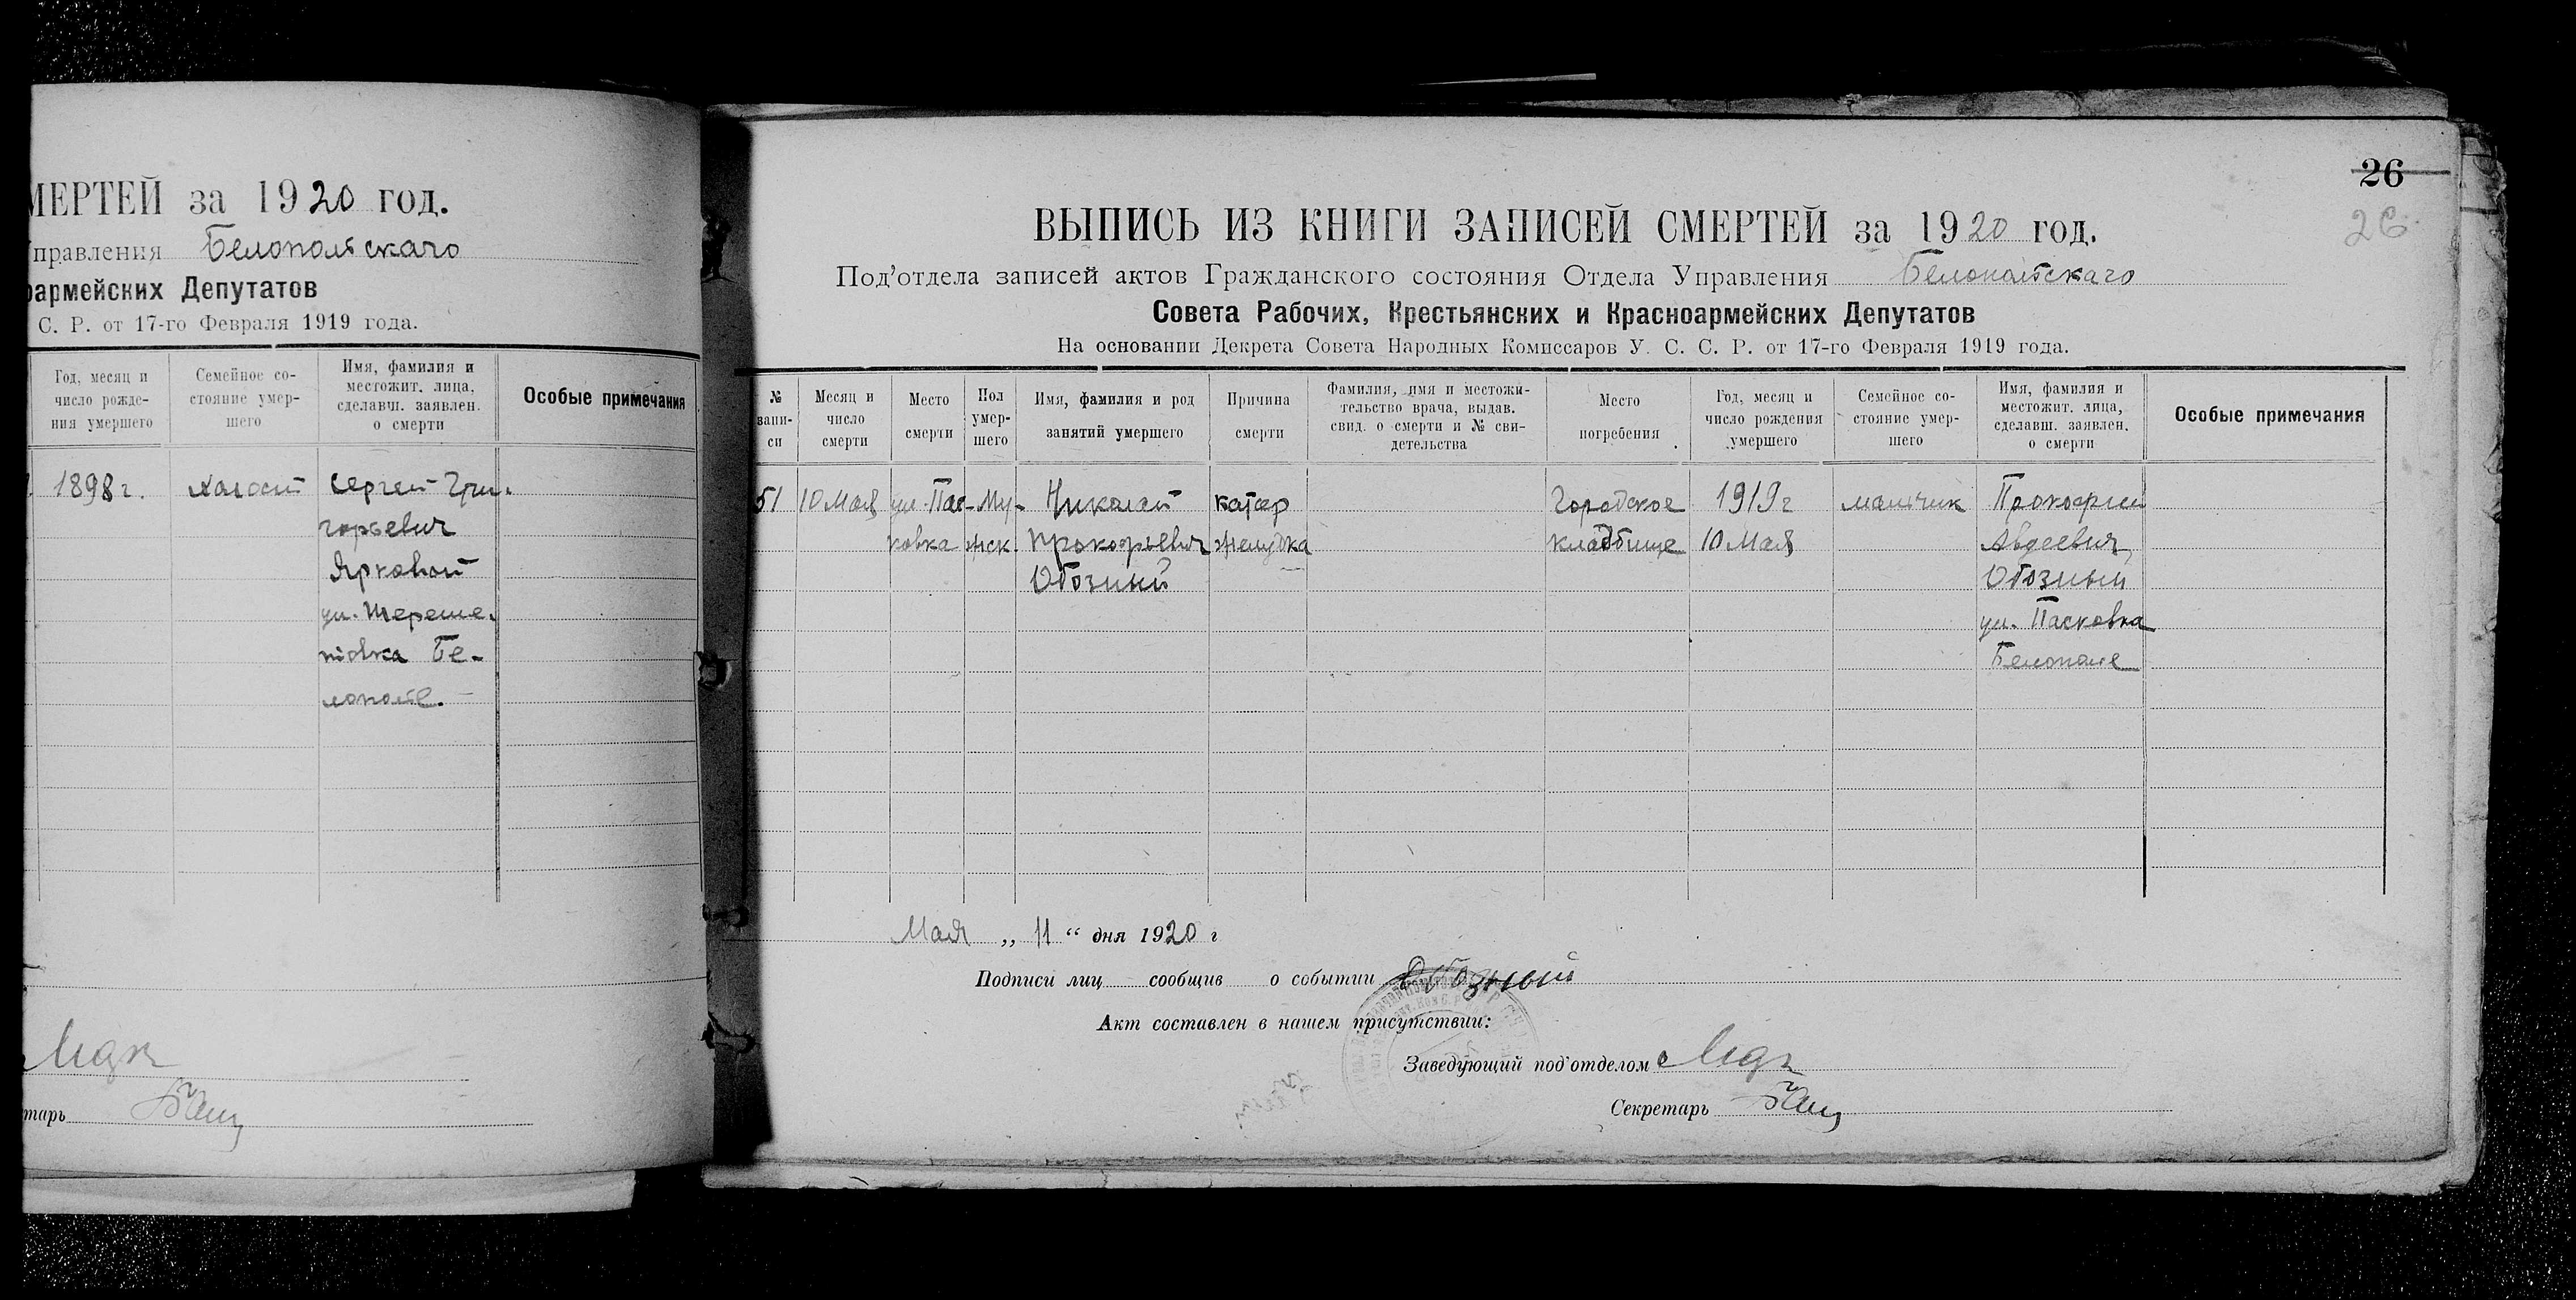 МЕРТЕЙ за 1920 год.
правления Белопольскаго
оармейских Депутатов
С. Р. от 17-го Февраля 1919 года.
Год, месяц и число рожде- ния умершего
Семейное со- стояние умер- шего
Имя, фамилия и местожит. лица, сделавш. заявлен. о смерти
Особые примечания
1898 г. холост Сергей Гри-
горьевич
Ярковой
ул. Тереше-
ковка Бе-
лополье.
тарь
26
26
ВЫПИСЬ ИЗ КНИГИ ЗАПИСЕЙ СМЕРТЕЙ за 1920 год.
Под'отдела записей актов Гражданского состояния Отдела Управления Белопольскаго
Совета Рабочих, Крестьянских и Красноармейских Депутатов
На основании Декрета Совета Народных Комиссаров У. С. С. Р. от 17-го Февраля 1919 года.
№ запи- си
Месяц и число смерти
Место смерти
Пол умер- шего
Имя, фамилия и род занятий умершего
Причина смерти
Фамилия, имя и местожи- тельство врача, выдав. свид. о смерти и № сви- детельства
Место погребения
Год, месяц и число рождения умершего
Семейное со- стояние умер- шего
Имя, фамилия и местожит. лица, сделавш. заявлен. о смерти
Особые примечания
51 10 Мая ул. Пас- Му- Николай катар Городское 1919 г мальчик Прокофий
ковка жск. Прокофьевич желудка кладбище 10 Мая Авдеевич
Обозный Обозный
ул. Пасковка
Белополье
Мая „ 11 “ дня 1920 г
Подписи лиц сообщив о событии Обозный
Акт составлен в нашем присутствии:
Заведующий под'отделом
Секретарь